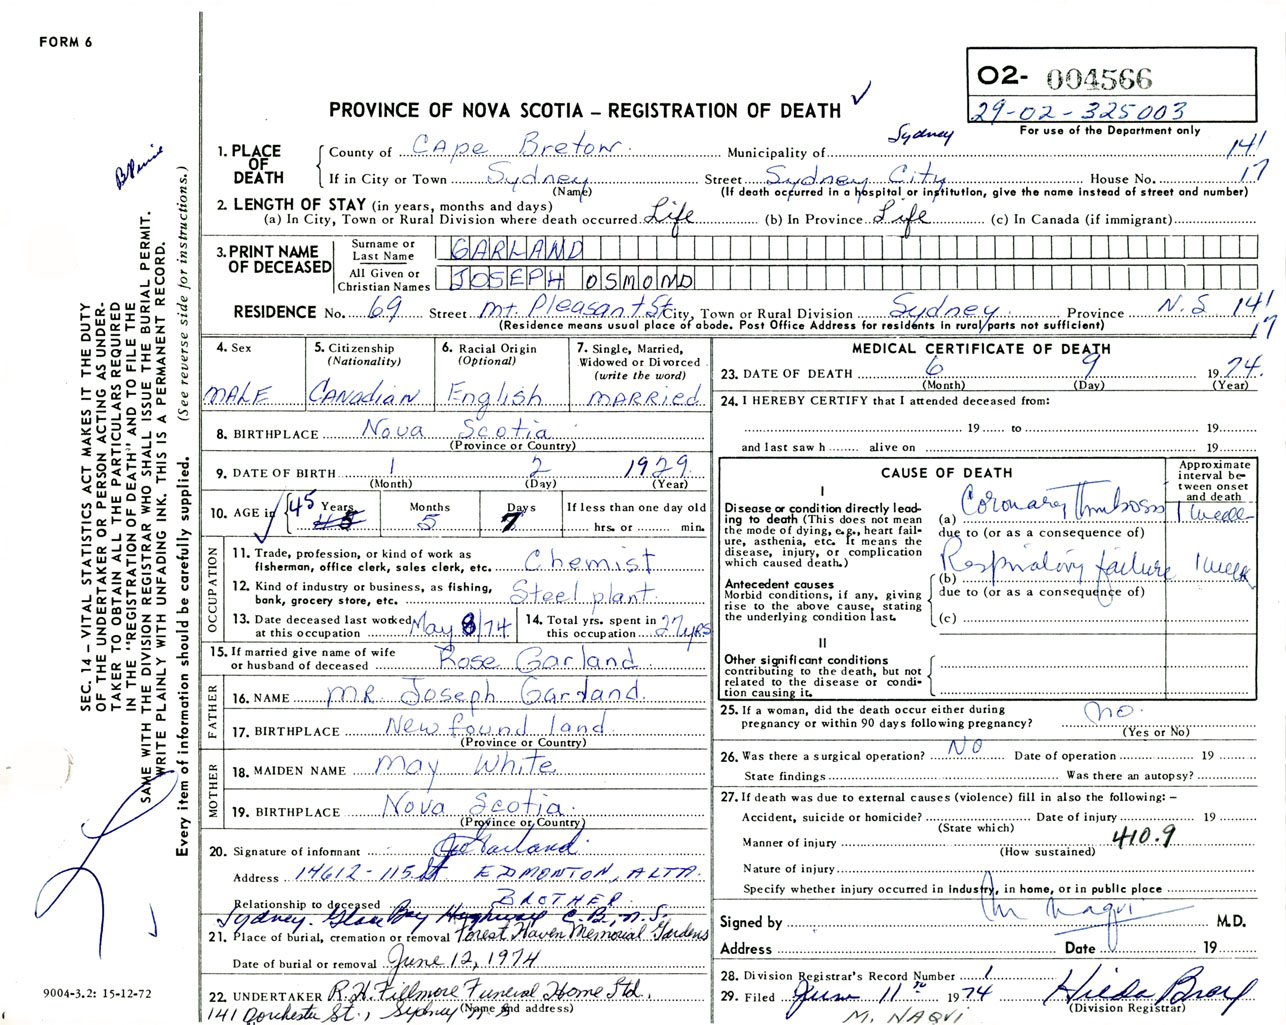 FORM 6
O2- 004566
29-02-325003
For use of the Department only
PROVINCE OF NOVA SCOTIA – REGISTRATION OF DEATH ✓
1. PLACE OF DEATH
County of Cape Breton Municipality of Sydney 141
If in City or Town Sydney Street Sydney City House No. 17
(Name) (If death occurred in a hospital or institution, give the name instead of street and number)
2. LENGTH OF STAY (in years, months and days)
(a) In City, Town or Rural Division where death occurred Life (b) In Province Life (c) In Canada (if immigrant)
3. PRINT NAME OF DECEASED
Surname or Last Name GARLAND
All Given or Christian Names JOSEPH OSMOND
RESIDENCE No. 69 Street Mt. Pleasant St City, Town or Rural Division Sydney Province N.S 141
(Residence means usual place of abode. Post Office Address for residents in rural parts not sufficient) 17
4. Sex
MALE
5. Citizenship (Nationality)
CANADIAN
6. Racial Origin (Optional)
English
7. Single, Married, Widowed or Divorced (write the word)
MARRIED
8. BIRTHPLACE Nova Scotia
(Province or Country)
9. DATE OF BIRTH 1 2 1929
(Month) (Day) (Year)
10. AGE in 45 Years 45 Months 5 Days 7 If less than one day old
hrs. or min.
OCCUPATION
11. Trade, profession, or kind of work as fisherman, office clerk, sales clerk, etc. Chemist
12. Kind of industry or business, as fishing, bank, grocery store, etc. Steel plant
13. Date deceased last worked at this occupation May 8/74
14. Total yrs. spent in this occupation 27 yrs
15. If married give name of wife or husband of deceased Rose Garland
FATHER
16. NAME MR. Joseph Garland
17. BIRTHPLACE New found land
(Province or Country)
MOTHER
18. MAIDEN NAME May White
19. BIRTHPLACE Nova Scotia
(Province or Country)
20. Signature of informant Garland
Address 14612-115 St EDMONTON, ALTA.
Relationship to deceased BROTHER
Sydney. Glace Bay Highway C.B., N.S.
21. Place of burial, cremation or removal Forest Haven Memorial Gardens
Date of burial or removal June 12, 1974
22. UNDERTAKER R.H. Fillmore Funeral Home Ltd.,
(Name and address)
141 Dorchester St., Sydney N.S
MEDICAL CERTIFICATE OF DEATH
23. DATE OF DEATH 6 9 1974.
(Month) (Day) (Year)
24. I HEREBY CERTIFY that I attended deceased from:
19 to 19
and last saw h alive on 19
CAUSE OF DEATH
Approximate interval between onset and death
I
Disease or condition directly leading to death (This does not mean the mode of dying, e.g., heart failure, asthenia, etc. It means the disease, injury, or complication which caused death.)
(a) Coronary Thrombosis 1 week
due to (or as a consequence of)
Antecedent causes
Morbid conditions, if any, giving rise to the above cause, stating the underlying condition last.
(b) Respiratory failure 1 week
due to (or as a consequence of)
(c)
II
Other significant conditions contributing to the death, but not related to the disease or condition causing it.
25. If a woman, did the death occur either during pregnancy or within 90 days following pregnancy? no.
(Yes or No)
26. Was there a surgical operation? NO Date of operation 19
State findings Was there an autopsy?
27. If death was due to external causes (violence) fill in also the following: –
Accident, suicide or homicide? Date of injury 19
(State which)
Manner of injury 410.9
(How sustained)
Nature of injury
Specify whether injury occurred in Industry, in home, or in public place
Signed by M Naqvi M.D.
Address Date 19
28. Division Registrar's Record Number 1
29. Filed June 11th 1974 Hilda
(Division Registrar)
M. NAQVI
SEC. 14 – VITAL STATISTICS ACT MAKES IT THE DUTY
OF THE UNDERTAKER OR PERSON ACTING AS UNDER-
TAKER TO OBTAIN ALL THE PARTICULARS REQUIRED
IN THE "REGISTRATION OF DEATH" AND TO FILE THE
SAME WITH THE DIVISION REGISTRAR WHO SHALL ISSUE THE BURIAL PERMIT.
WRITE PLAINLY WITH UNFADING INK. THIS IS A PERMANENT RECORD.
Every item of information should be carefully supplied. (See reverse side for instructions.)
9004-3.2: 15-12-72